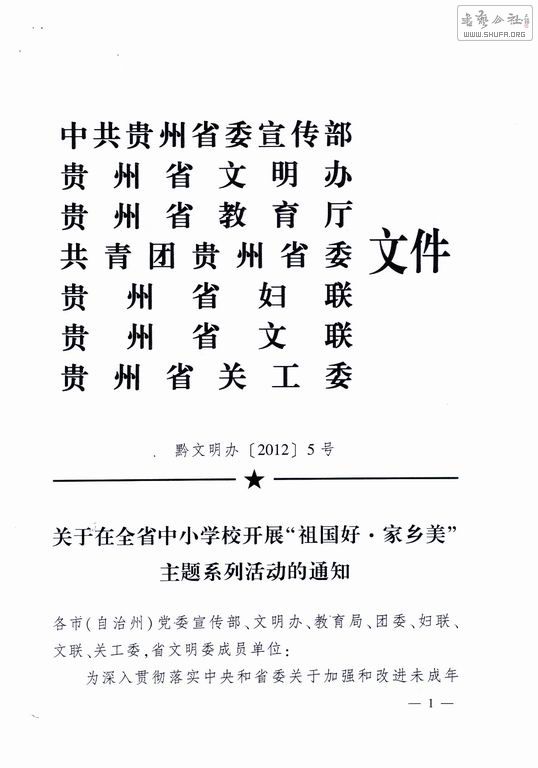 书艺公社
WWW.SHUFA.ORG
中共贵州省委宣传部
贵州省文明办
贵州省教育厅
共青团贵州省委
贵州省妇联
贵州省文联
贵州省关工委
文件
黔文明办〔2012〕5号
关于在全省中小学校开展“祖国好·家乡美”
主题系列活动的通知
各市(自治州)党委宣传部、文明办、教育局、团委、妇联、
文联、关工委,省文明委成员单位:
为深入贯彻落实中央和省委关于加强和改进未成年
— 1 —